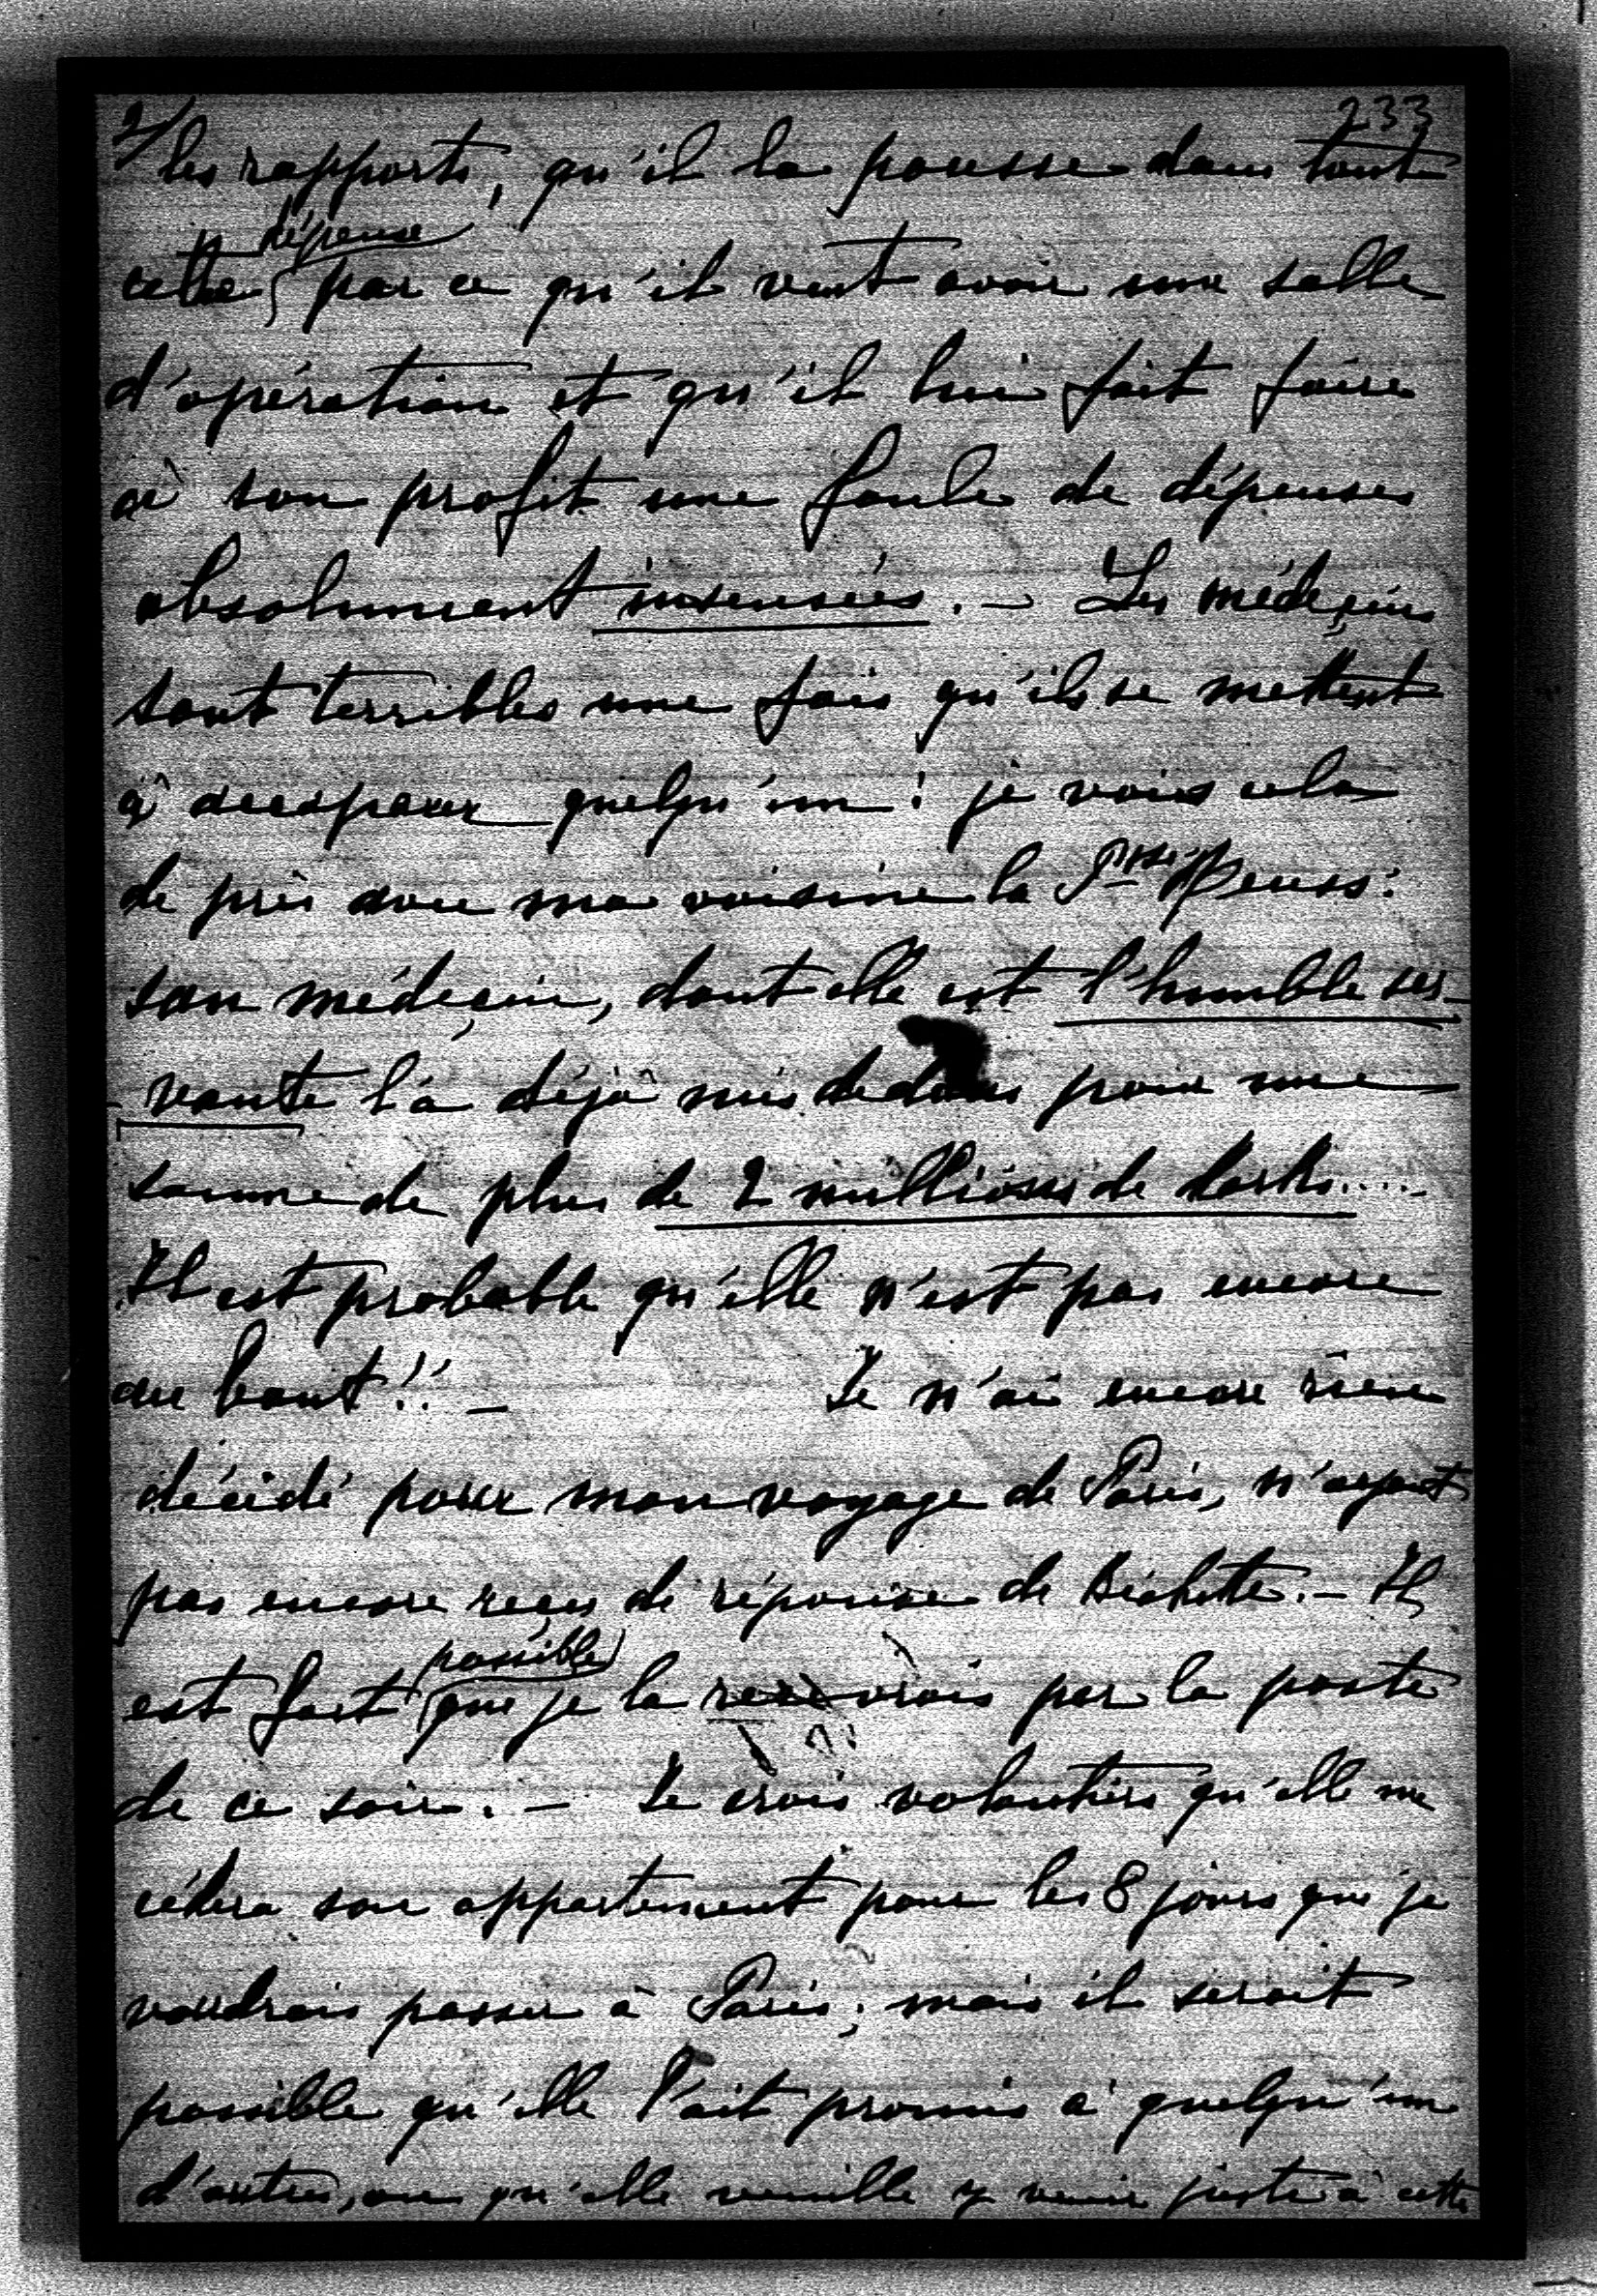 2/ 233
les rapports, qu'il la pousse dans toute
cette dépense par ce qu'il veut avoir une salle
d'opération et qu'il lui fait faire
à son profit une foule de dépenses
absolument insensées. — Les médeçins
sont terribles une fois qu'ils se mettent
à accaparer quelqu'un! je vois cela
de près avec ma voisine la Psse
son médeçin, dont elle est l'humble ser-
vante l'a déjà mis dedans pour une
somme de plus de 2 millions de Marks....
Il est probable qu'elle n'est pas encore
au bout!! — Je n'ai encore rien
décidé pour mon voyage de Paris, n'ayant
pas encore reçu de réponse de Bichette. — Il
est fort possible que je la recevrais par la poste
de ce soir. — Je crois volontiers qu'elle me
cédera son appartement pour les 8 jours que je
voudrais passer à Paris; mais il serait
possible qu'elle l'ait promis à quelqu'un
d'autres, ou qu'elle veuille y venir juste à cette